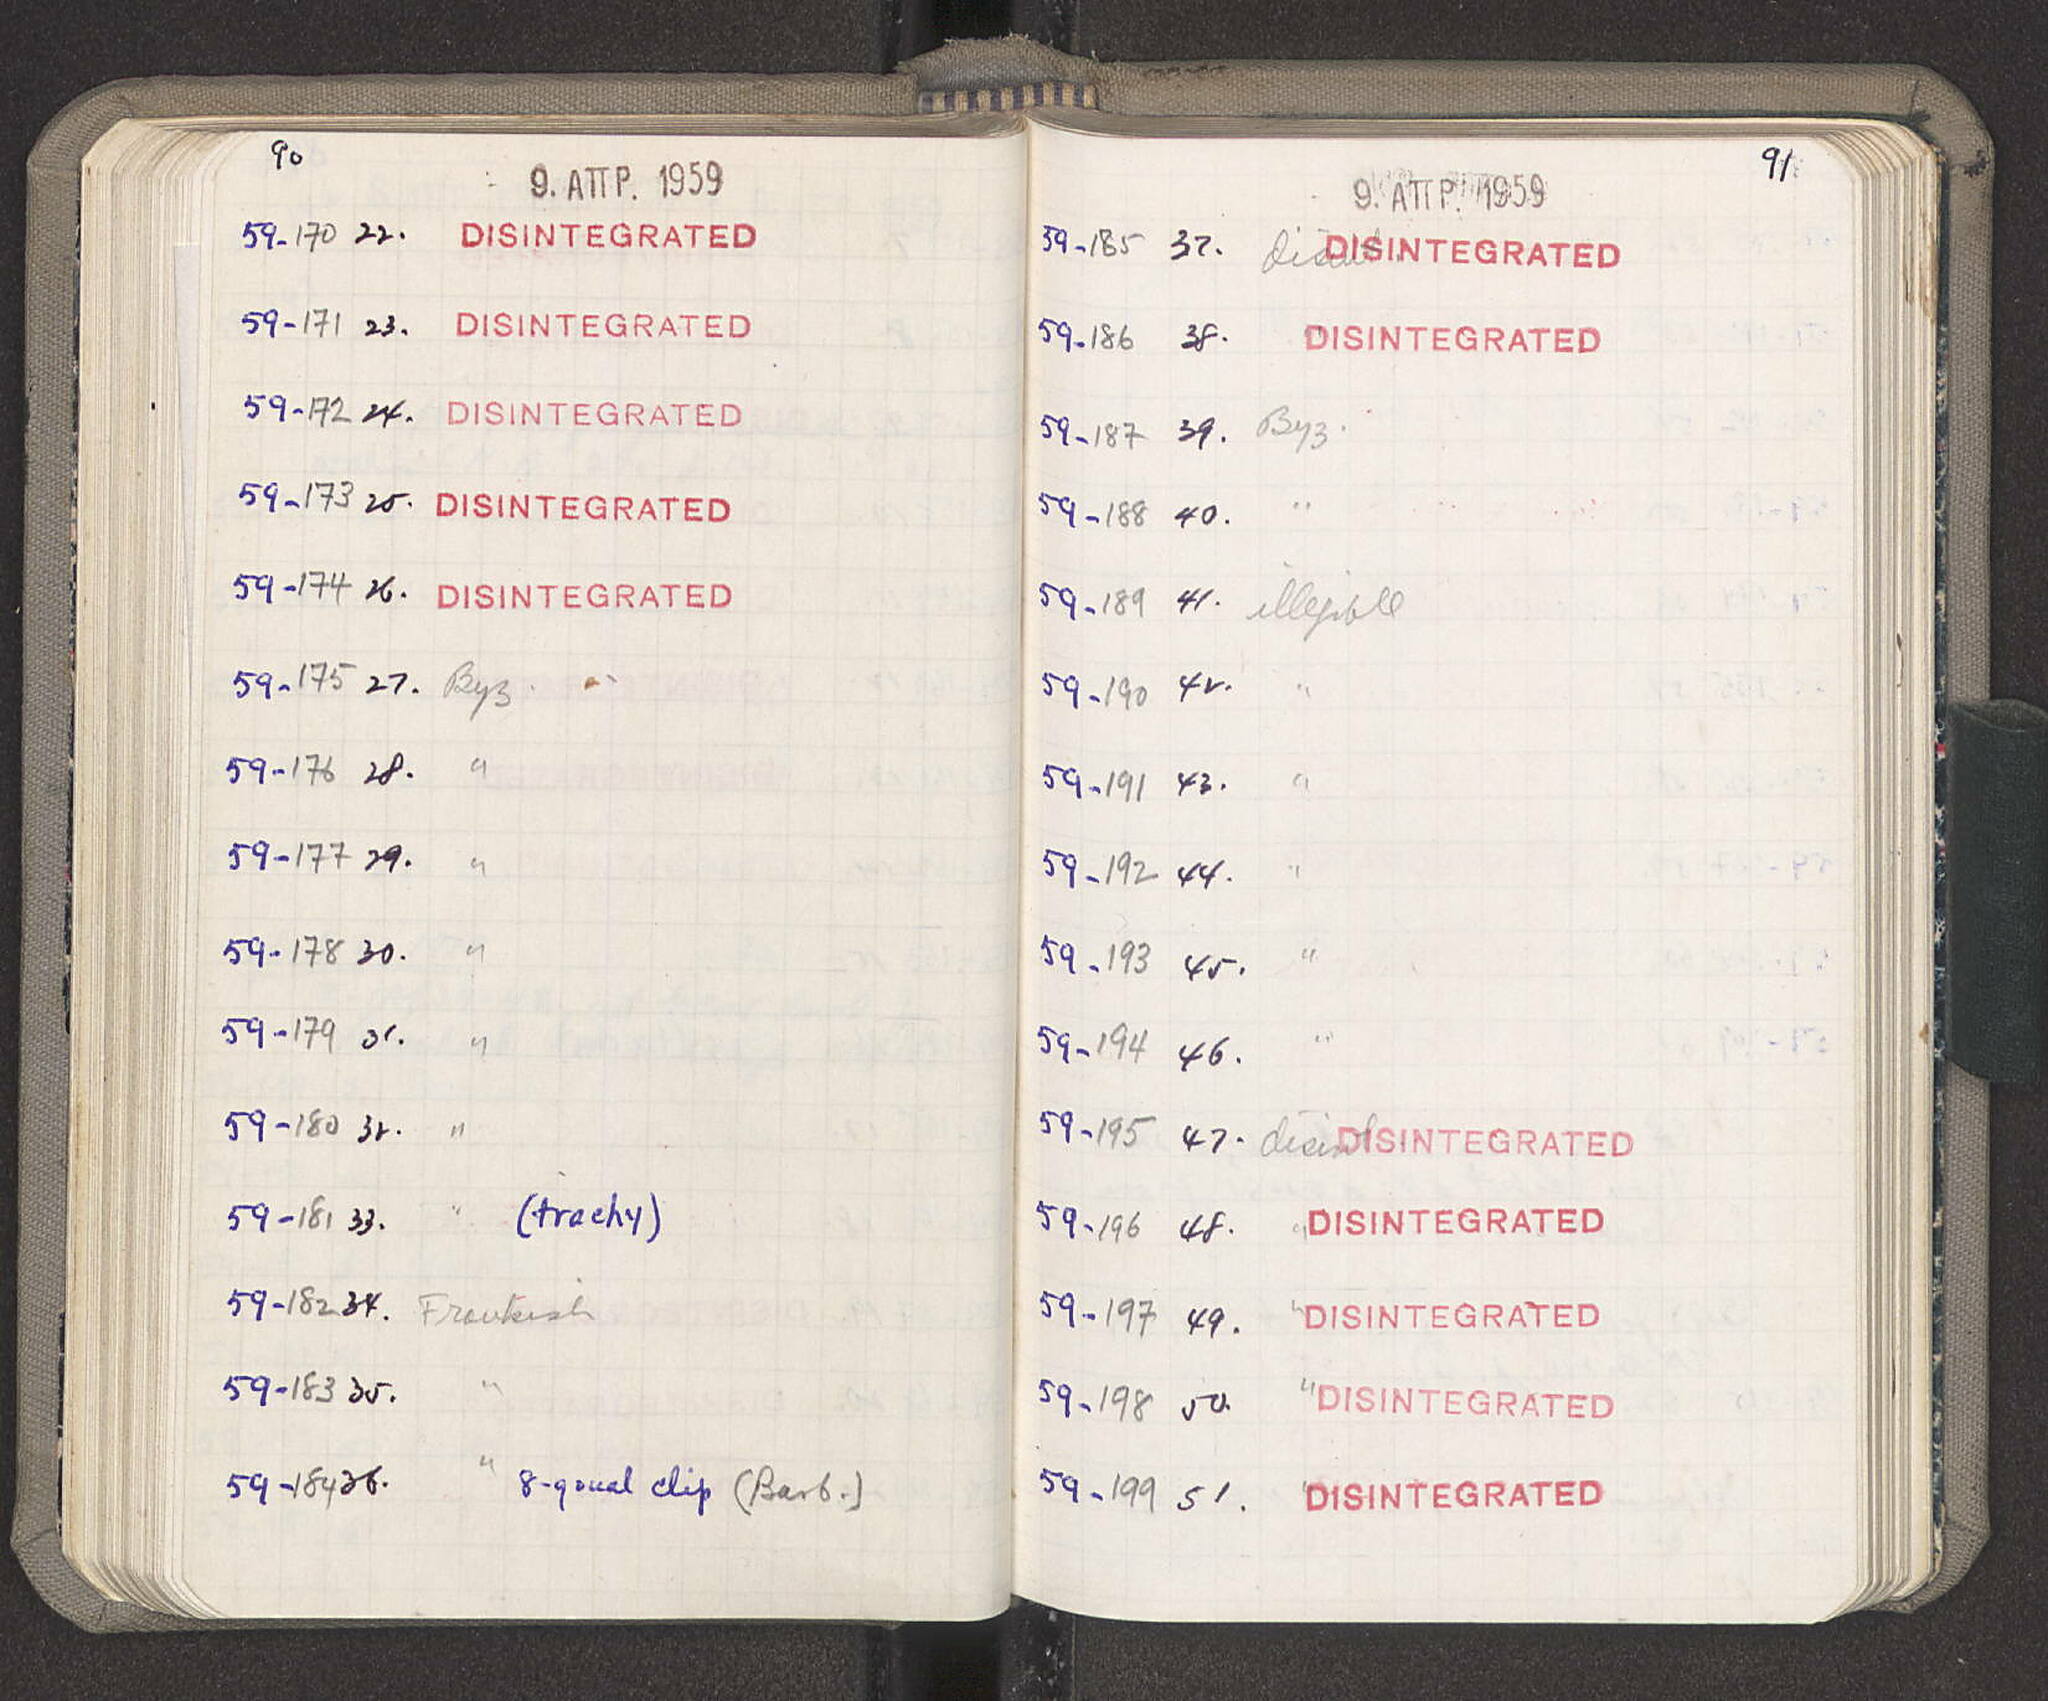 90
9. ΑΠΡ. 1959
59-170 22. DISINTEGRATED
59-171 23. DISINTEGRATED
59-172 24. DISINTEGRATED
59-173 25. DISINTEGRATED
59-174 26. DISINTEGRATED
59-175 27. Byz.
59-176 28. "
59-177 29. "
59-178 30. "
59-179 31. "
59-180 32. "
59-181 33. " (trachy)
59-182 34. Frankish
59-183 35. "
59-184 36. " clip (Barb.)
91
9. ΑΠΡ. 1959
59-185 37. DISINTEGRATED
59-186 38. " DISINTEGRATED
59-187 39. Byz.
59-188 40. "
59-189 41. illegible
59-190 42. "
59-191 43. "
59-192 44. "
59-193 45. "
59-194 46. "
59-195 47. disint DISINTEGRATED
59-196 48. " DISINTEGRATED
59-197 49. " DISINTEGRATED
59-198 50. " DISINTEGRATED
59-199 51. " DISINTEGRATED